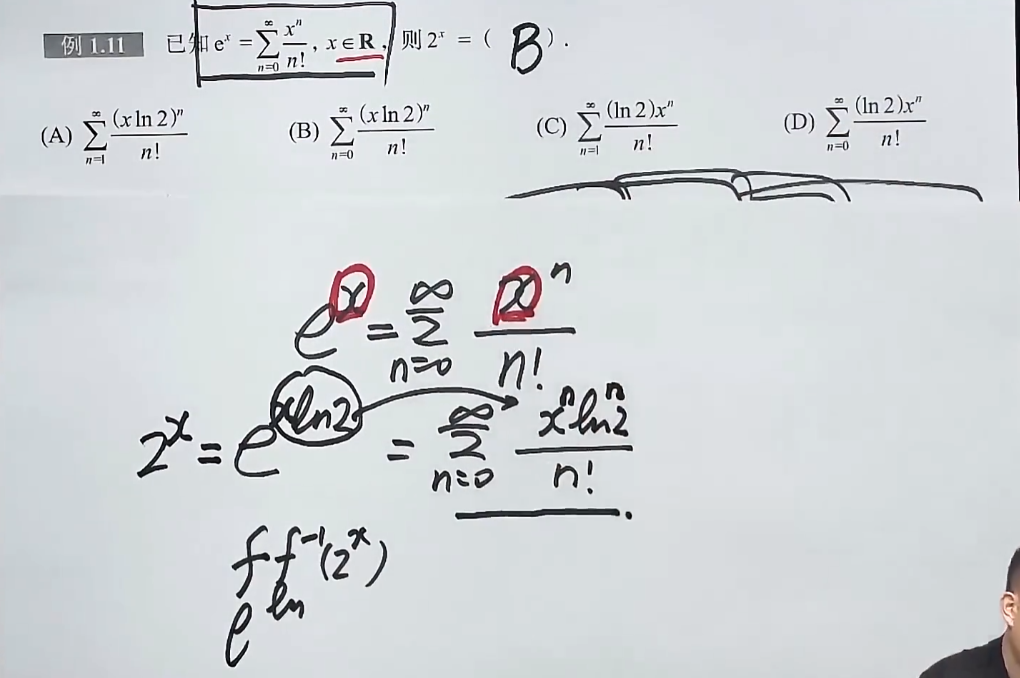 例 1.11 已知 eˣ = ∑_{n=0}^{∞} xⁿ/n!, x∈R, 则 2ˣ = ( B ).
(A) ∑_{n=1}^{∞} (x ln 2)ⁿ/n! (B) ∑_{n=0}^{∞} (x ln 2)ⁿ/n! (C) ∑_{n=1}^{∞} (ln 2)xⁿ/n! (D) ∑_{n=0}^{∞} (ln 2)xⁿ/n!
eˣ = ∑_{n=0}^{∞} xⁿ/n!
2ˣ = e^{xln2} = ∑_{n=0}^{∞} xⁿlnⁿ2/n! .
f f⁻¹(2ˣ)
e^{ln}